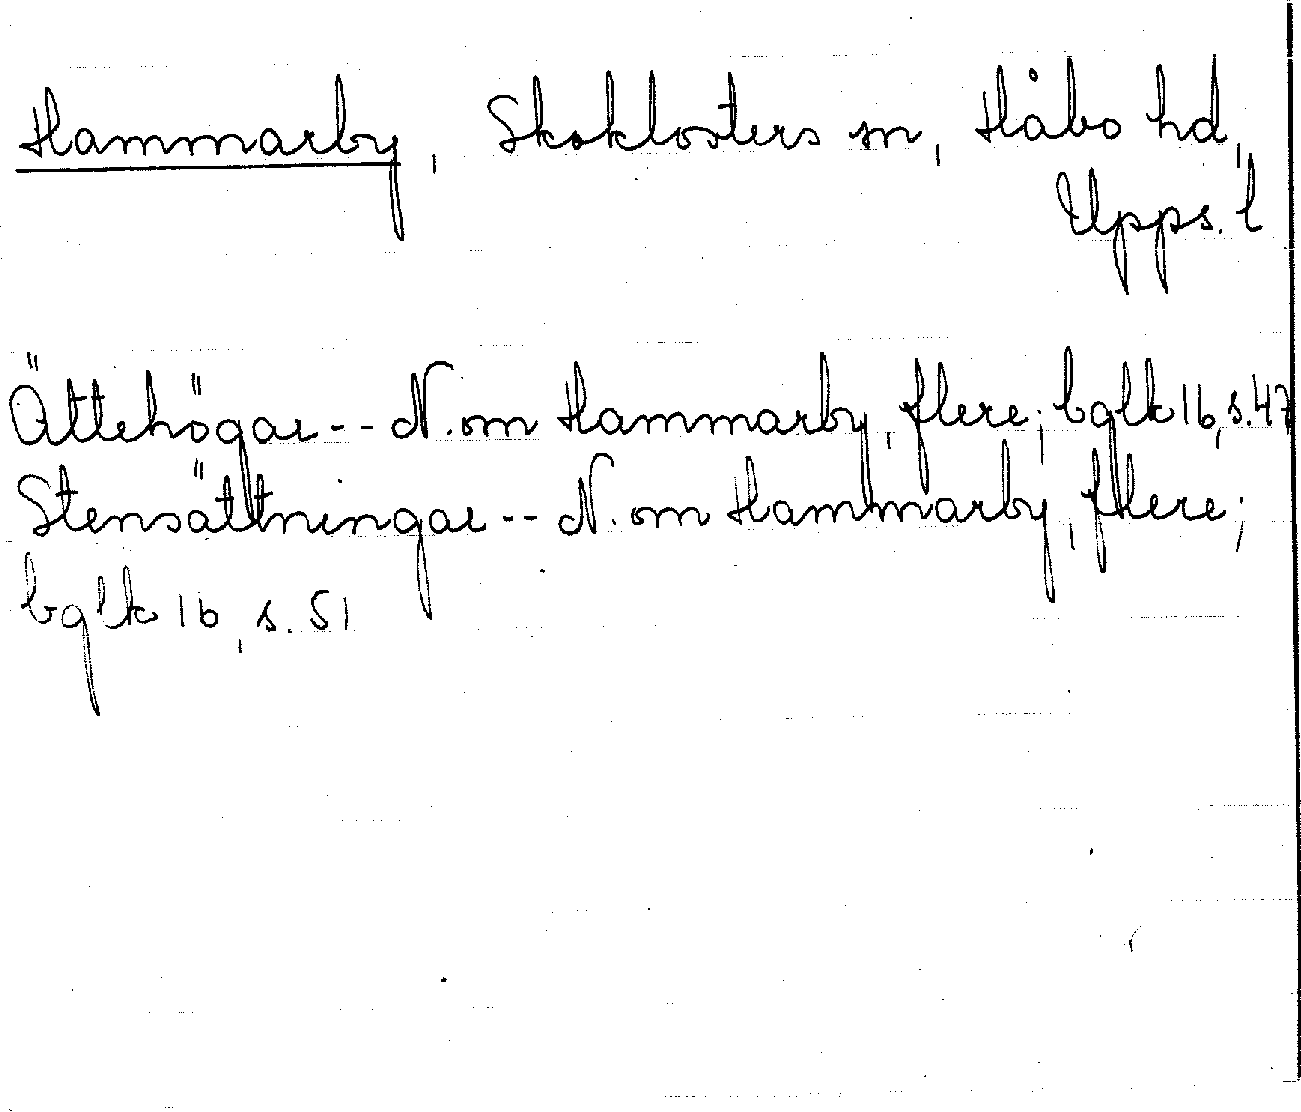 Hammarby, Skoklosters sn, Håbo hd,
Upps. l
Ättehögar -- N. om Hammarby, flere; bglk 16, s. 47
Stensättningar -- N. om Hammarby, flere;
bglk 16, s. 51